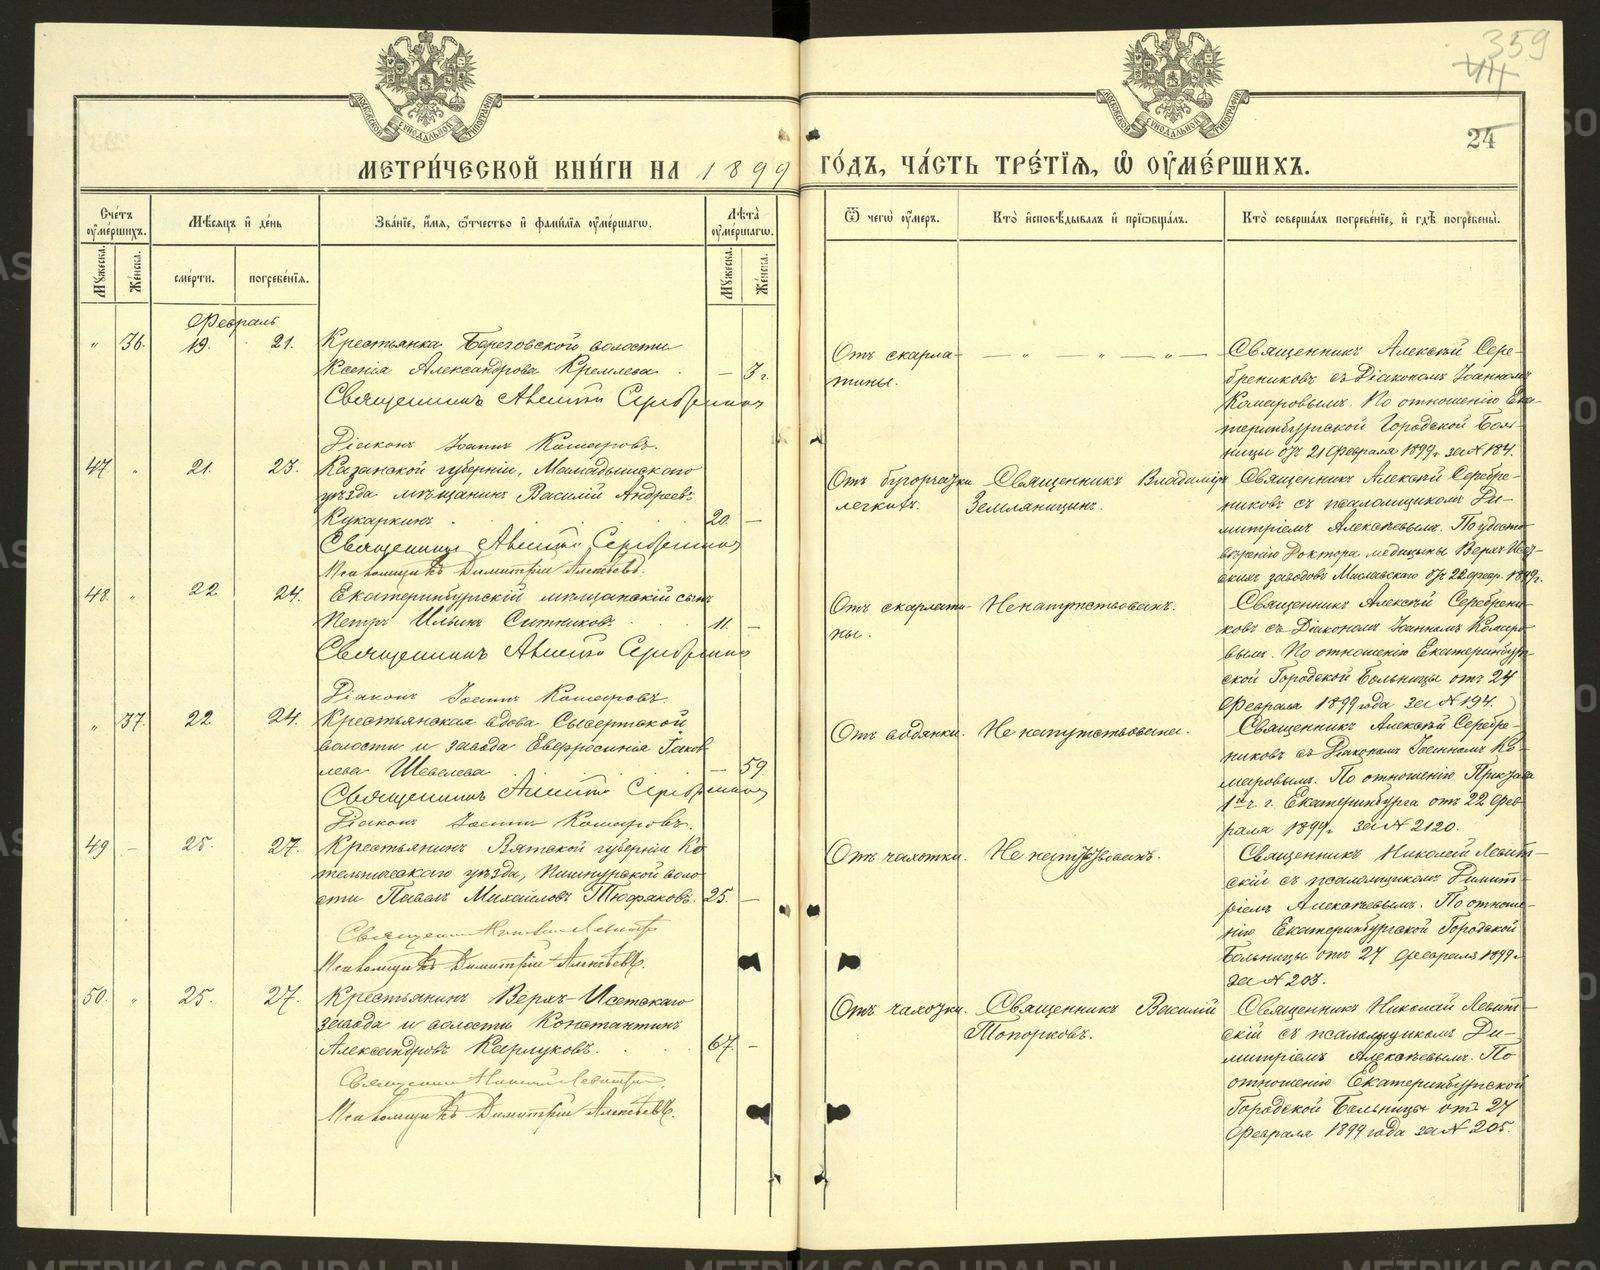 359
44
24
МОСКОВСКОЙ СѴНОДАЛЬНОЙ ТИПОГРАФІИ
МОСКОВСКОЙ СѴНОДАЛЬНОЙ ТИПОГРАФІИ
МЕТРИ́ЧЕСКОЙ КНИ́ГИ НА 1899 ГО́ДЪ, ЧА́СТЬ ТРЕ́ТЇѦ, Ѡ҆ ОУ҆МЕ́РШИХЪ.
Сче́тъ оу҆ме́ршихъ.
Мѣ́сѧцъ и҆ де́нь
Зва́нїе, и҆́мѧ, ѻ҆́тчество и҆ фамилїѧ оу҆ме́ршагѡ.
Лѣ́та оу҆ме́ршагѡ.
Ѿ чегѡ̀ оу҆́меръ.
Кто̀ и҆сповѣ́дывалъ и҆ прїѡбща́лъ.
Кто̀ соверша́лъ погребе́нїе, и҆ гдѣ̀ погребены̀.
Мꙋ́жеска.
Же́нска.
сме́рти.
погребе́нїѧ.
Мꙋ́жеска.
Же́нска.
Февраль
" 36. 19. 21. Крестьянка Березовской волости
Ксенія Александрова Кремлева. — 3 г.
Священникъ Алексій Серебрениковъ
Діаконъ Іоаннъ Комаровъ.
Отъ скарла-
тины.
— " — " — " —
Священникъ Алексѣй Сере-
брениковъ съ Діакономъ Іоанномъ
Комаровымъ. По отношенію Ека-
теринбургской Городской Боль-
ницы отъ 21 Февраля 1899 г. за № 184.
47 " 21. 23. Казанской губерніи, Мамадышскаго
уѣзда мѣщанинъ Василій Андреевъ
Кукаркинъ. 20. —
Священникъ Алексій Серебрениковъ
Псаломщикъ Димитрій Алексѣевъ.
Отъ бугорчатки
легкихъ.
Священникъ Владиміръ
Земляницынъ.
Священникъ Алексѣй Серебре-
никовъ съ псаломщикомъ Ди-
митріемъ Алексѣевымъ. По удосто-
вѣренію Доктора медицины Верхъ-Исет-
скихъ заводовъ Миславскаго отъ 22 февр. 1899 г.
48. " 22 24. Екатеринбургскій мѣщанскій сынъ
Петръ Ильинъ Ситниковъ. 11. —
Священникъ Алексій Серебрениковъ
Діаконъ Іоаннъ Комаровъ.
Отъ скарлати-
ны.
Не напутствованъ.
Священникъ Алексѣй Серебрени-
ковъ съ Діакономъ Іоанномъ Комаро-
вымъ. По отношенію Екатеринбург-
ской Городской Больницы отъ 24
Февраля 1899 года за № 194.
" 37. 22 24. Крестьянская вдова Сысертской
волости и завода Евфросинія Іаков-
лева Шевелева. — 59.
Священникъ Алексій Серебрениковъ
Діаконъ Іоаннъ Комаровъ.
Отъ водянки.
Не напутствована.
Священникъ Алексѣй Серебре-
никовъ съ Діакономъ Іоанномъ Ко-
маровымъ. По отношенію Пристава
1й ч. г. Екатеринбурга отъ 22 Фев-
раля 1899 г. за № 2120.
49 — 25. 27. Крестьянинъ Вятской губерніи Ко-
тельническаго уѣзда, Пишнурской воло-
сти Павелъ Михаиловъ Тюфяковъ. 25. —
Священникъ Николай Левитскій
Псаломщикъ Димитрій Алексѣевъ.
Отъ чахотки.
Не напутствованъ.
Священникъ Николай Левит-
скій съ псаломщикомъ Димит-
ріемъ Алексѣевымъ. По отноше-
нію Екатеринбургской Городской
Больницы отъ 27 февраля 1899 г.
за № 203.
50. " 25. 27. Крестьянинъ Верхъ-Исетскаго
завода и волости Константинъ
Александровъ Карлуковъ. 67. —
Священникъ Николай Левитскій.
Псаломщикъ Димитрій Алексѣевъ.
Отъ чахотки.
Священникъ Василій
Топорковъ.
Священникъ Николай Левит-
скій съ псаломщикомъ Ди-
митріемъ Алексѣевымъ. По
отношенію Екатеринбургской
Городской Больницы отъ 27
Февраля 1899 года за № 205.
METRIKI.GASO-URAL.RU
METRIKI.GASO-URAL.RU
METRIKI.GASO